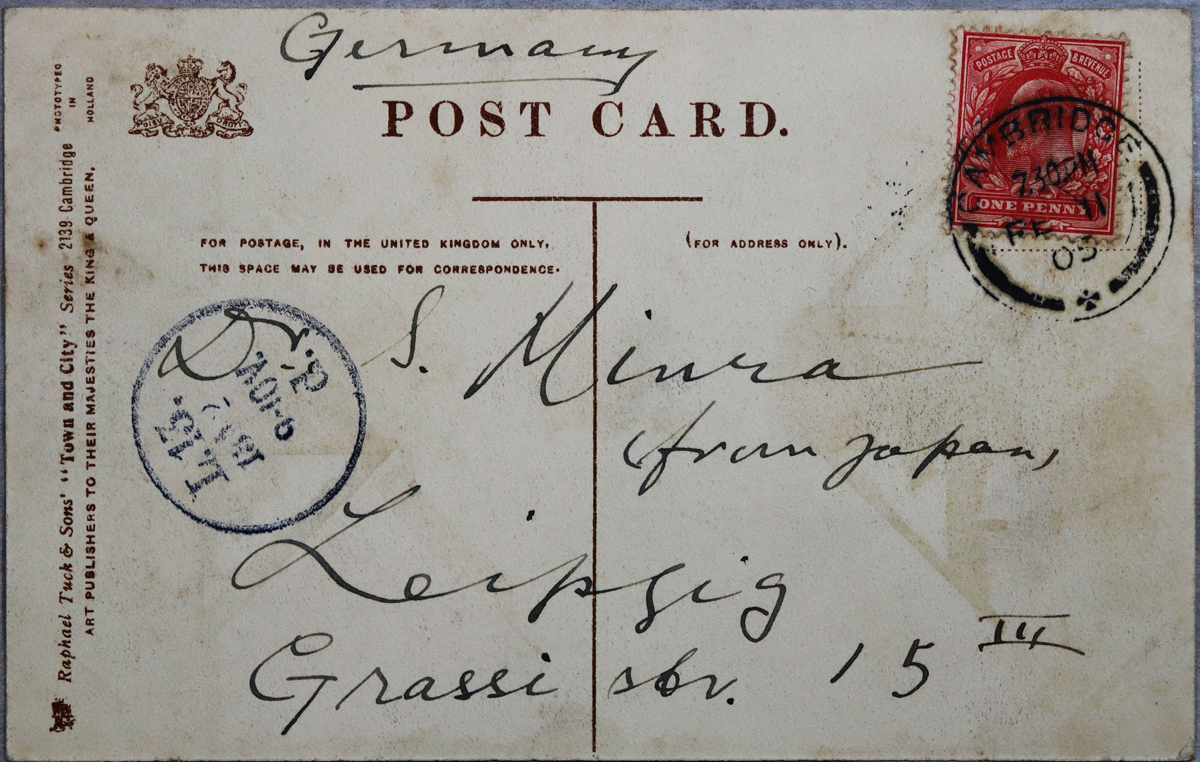 Germany
POST CARD.
POSTAGE & REVENUE
ONE PENNY
CAMBRIDGE
7.30PM
FE 11
05
FOR POSTAGE, IN THE UNITED KINGDOM ONLY,
THIS SPACE MAY BE USED FOR CORRESPONDENCE.
(FOR ADDRESS ONLY).
Dr. S. Miura
from Japan,
Leipzig
Grassi str. 15 III
L. 13.
PHOTOTYPED
IN
HOLLAND
Raphael Tuck & Sons' "Town and City" Series 2139 Cambridge
ART PUBLISHERS TO THEIR MAJESTIES THE KING & QUEEN.